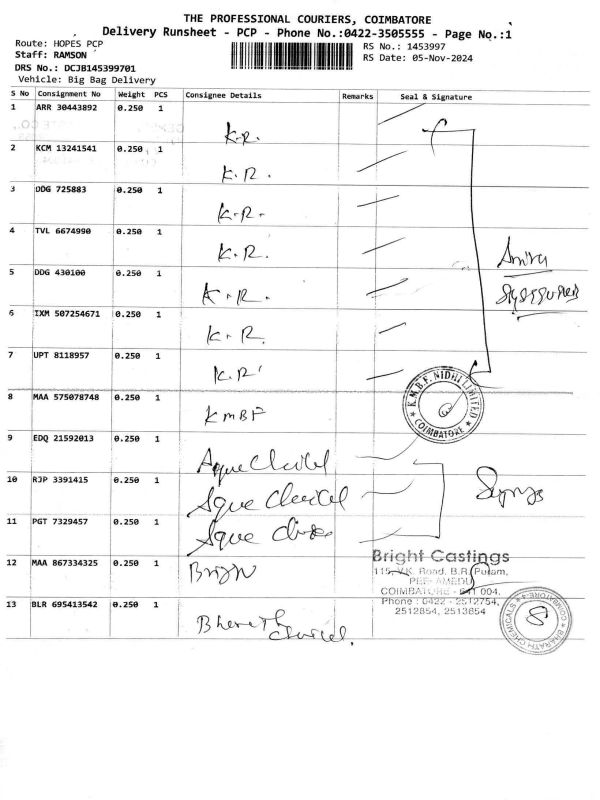 THE PROFESSIONAL COURIERS, COIMBATORE
Delivery Runsheet - PCP - Phone No.:0422-3505555 - Page No.:1
Route: HOPES PCP
RS No.: 1453997
Staff: RAMSON
RS Date: 05-Nov-2024
DRS No.: DCJB145399701
Vehicle: Big Bag Delivery
S No Consignment No Weight PCS Consignee Details Remarks Seal & Signature
1 ARR 30443892 0.250 1 K.R.
2 KCM 13241541 0.250 1 K.R.
3 DDG 725883 0.250 1 K.R.
4 TVL 6674990 0.250 1 K.R.
5 DDG 430100 0.250 1 K.R.
6 IXM 507254671 0.250 1 K.R.
7 UPT 8118957 0.250 1 K.R.
8 MAA 575078748 0.250 1 KMBF
K.M.B.F. NIDHI LIMITED
COIMBATORE
9 EDQ 21592013 0.250 1
10 RJP 3391415 0.250 1
11 PGT 7329457 0.250 1
12 MAA 867334325 0.250 1
Bright Castings
115, V.K. Road, B.R. Puram,
PEELAMEDU
COIMBATORE - 641 004.
Phone : 0422 - 2512754,
2512854, 2513654
13 BLR 695413542 0.250 1 Bharath
BHARATH CHEMICALS
COIMBATORE-4
8